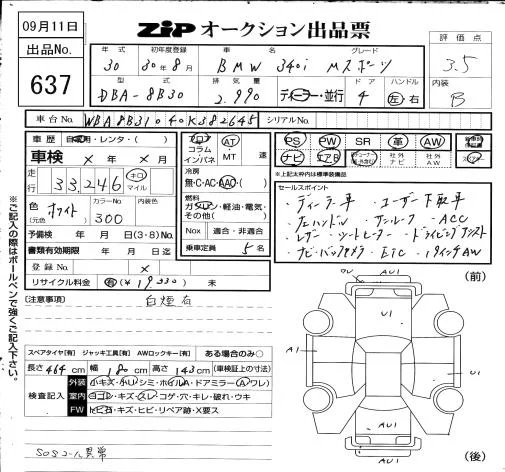 09月11日
出品No.
637
ZIP オークション出品票
年式 初年度登録 車名 グレード
30 30年8月 BMW 340i Mスポーツ
型式 排気量 ドア ハンドル
DBA-8B30 2.990 ディーラー・並行 4 左右
評価点
3.5
内装
B
車台No. WBA8B31040K382645 シリアルNo.
車歴 自家用・レンタ・( )
車検 × 年 × 月
走行 33,246 キロ マイル
色(元色) ホワイト カラーNo. 300 内装色
予備検 年 月 日(3・8)No.
書類有効期限 年 月 日迄
登録No. ×
リサイクル料金 有(¥19330) 未
フロア コラム インパネ AT MT 速
冷房
無・C・AC・AAC・( )
燃料
ガソリン・軽油・電気・その他( )
Nox 適合・非適合
乗車定員 5名
PS PW SR 革 AW
ナビ エアB 社外ナビ 社外AW
※上記太枠内は標準装備品
セールスポイント
・ディーラー車 ・ユーザー下取車
・左ハンドル ・サンルーフ ・ACC
・レザー ・シートヒーター ・ドライビングアシスト
・ナビ・バックカメラ ・ETC ・19インチAW
[注意事項] 白煙有
※ご記入の際はボールペンで強くご記入下さい。
スペアタイヤ[有] ジャッキ工具[有] AWロックキー[有] ある場合のみ○
長さ 464 cm 幅 180 cm 高さ 143 cm (車検証上の寸法)
検査記入
外装 小キズ・小凹・シミ・ホイルA・ドアミラー(A・ワレ)
室内 ヨゴレ・キズ・スレ・コゲ・穴・キレ・破れ・ウキ
FW トビ石・キズ・ヒビ・リペア跡・X要ス
SOSコール異常
(前)
AU1
U1
A1
U1
AU1
(後)